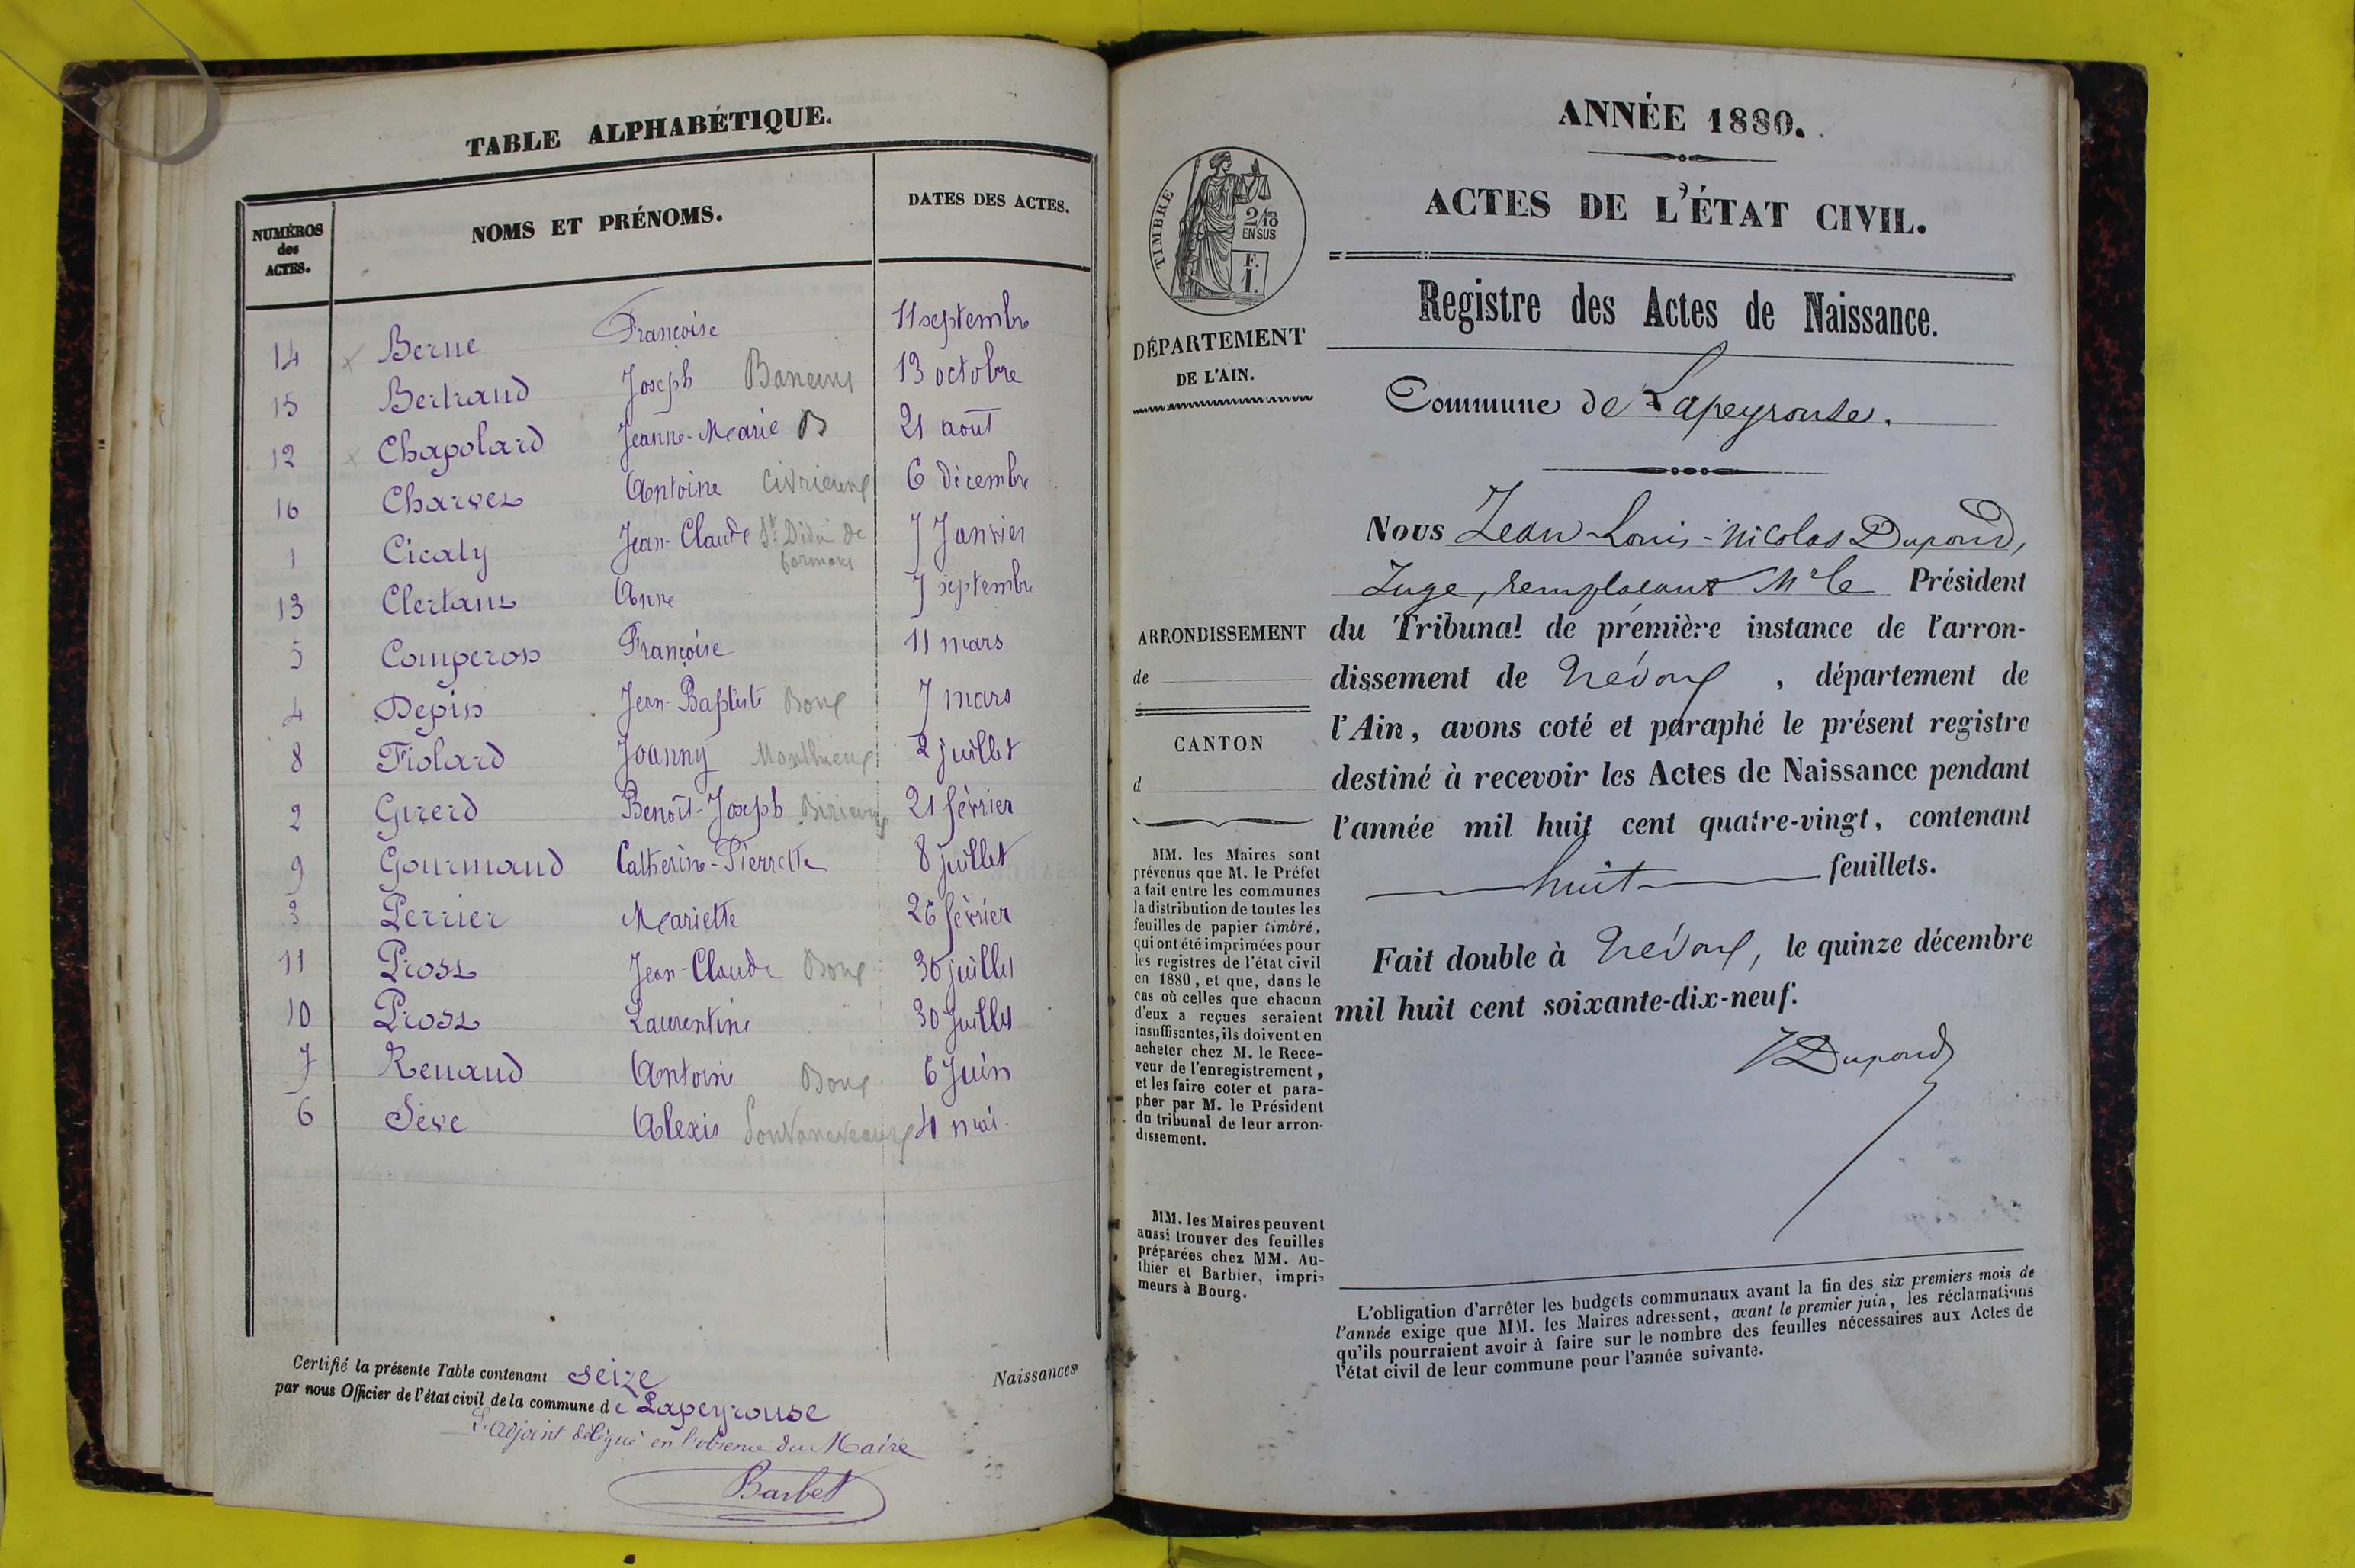 TABLE ALPHABÉTIQUE.
NUMÉROS des ACTES.
NOMS ET PRÉNOMS.
DATES DES ACTES.
14 Berne Françoise 11 septembre
15 Bertrand Joseph 13 octobre
12 Chapolard Jeanne-Marie B 21 août
16 Charvet Antoine Civrieux 6 décembre
1 Cicaty Jean-Claude St Didier de formans 7 Janvier
13 Clertant Anne 7 septembre
5 Comperot Françoise 11 mars
4 Depin Jean-Baptiste Bouf 7 mars
8 Fiolard Joanny Monthieux 2 juillet
2 Girerd Benoît-Joseph Birieux 21 février
9 Gourmand Catherine-Pierrette 8 juillet
3 Perrier Mariette 26 février
11 Prost Jean-Claude Bouf 30 juillet
10 Prost Laurentine 30 Juillet
7 Renaud Antoine Bouf 6 Juin
6 Sève Alexis 4 mai
Certifié la présente Table contenant seize Naissances
par nous Officier de l'état civil de la commune de Lapeyrouse
L'adjoint délégué en l'absence du Maire
Barbet
ANNÉE 1880.
ACTES DE L'ÉTAT CIVIL.
TIMBRE
2/10 EN SUS
F. 1.
Registre des Actes de Naissance.
DÉPARTEMENT
DE L'AIN.
Commune de Lapeyrouse.
Nous Jean-Louis-Nicolas Dupond,
Juge, remplaçant Mr le Président
du Tribunal de première instance de l'arron-
dissement de Trévoux, département de
l'Ain, avons coté et paraphé le présent registre
destiné à recevoir les Actes de Naissance pendant
l'année mil huit cent quatre-vingt, contenant
huit feuillets.
Fait double à Trévoux, le quinze décembre
mil huit cent soixante-dix-neuf.
Dupond
ARRONDISSEMENT
de
CANTON
d
MM. les Maires sont
prévenus que M. le Préfet
a fait entre les communes
la distribution de toutes les
feuilles de papier timbré,
qui ont été imprimées pour
les registres de l'état civil
en 1880, et que, dans le
cas où celles que chacun
d'eux a reçues seraient
insuffisantes, ils doivent en
acheter chez M. le Rece-
veur de l'enregistrement,
et les faire coter et para-
pher par M. le Président
du tribunal de leur arron-
dissement.
MM. les Maires peuvent
aussi trouver des feuilles
préparées chez MM. Au-
thier et Barbier, impri-
meurs à Bourg.
L'obligation d'arrêter les budgets communaux avant la fin des six premiers mois de
l'année exige que MM. les Maires adressent, avant le premier juin, les réclamations
qu'ils pourraient avoir à faire sur le nombre des feuilles nécessaires aux Actes de
l'état civil de leur commune pour l'année suivante.